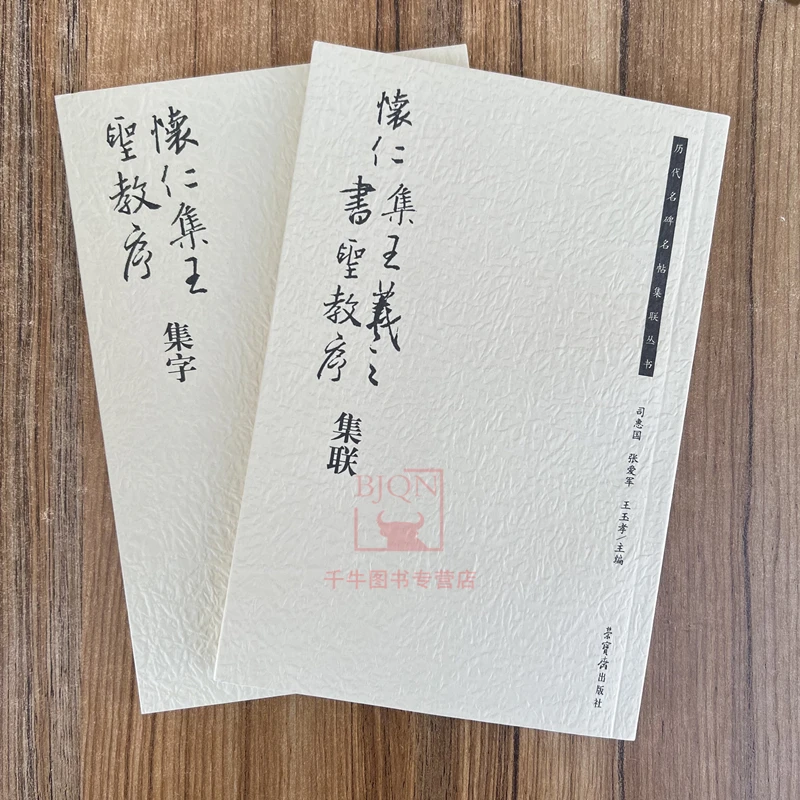 懷仁集王
聖教序
集字
懷仁集王羲之
書聖教序
集联
历代名碑名帖集联丛书
司惠国 张爱军 王玉孝/主编
荣寳斋出版社
BJQN
千牛图书专营店